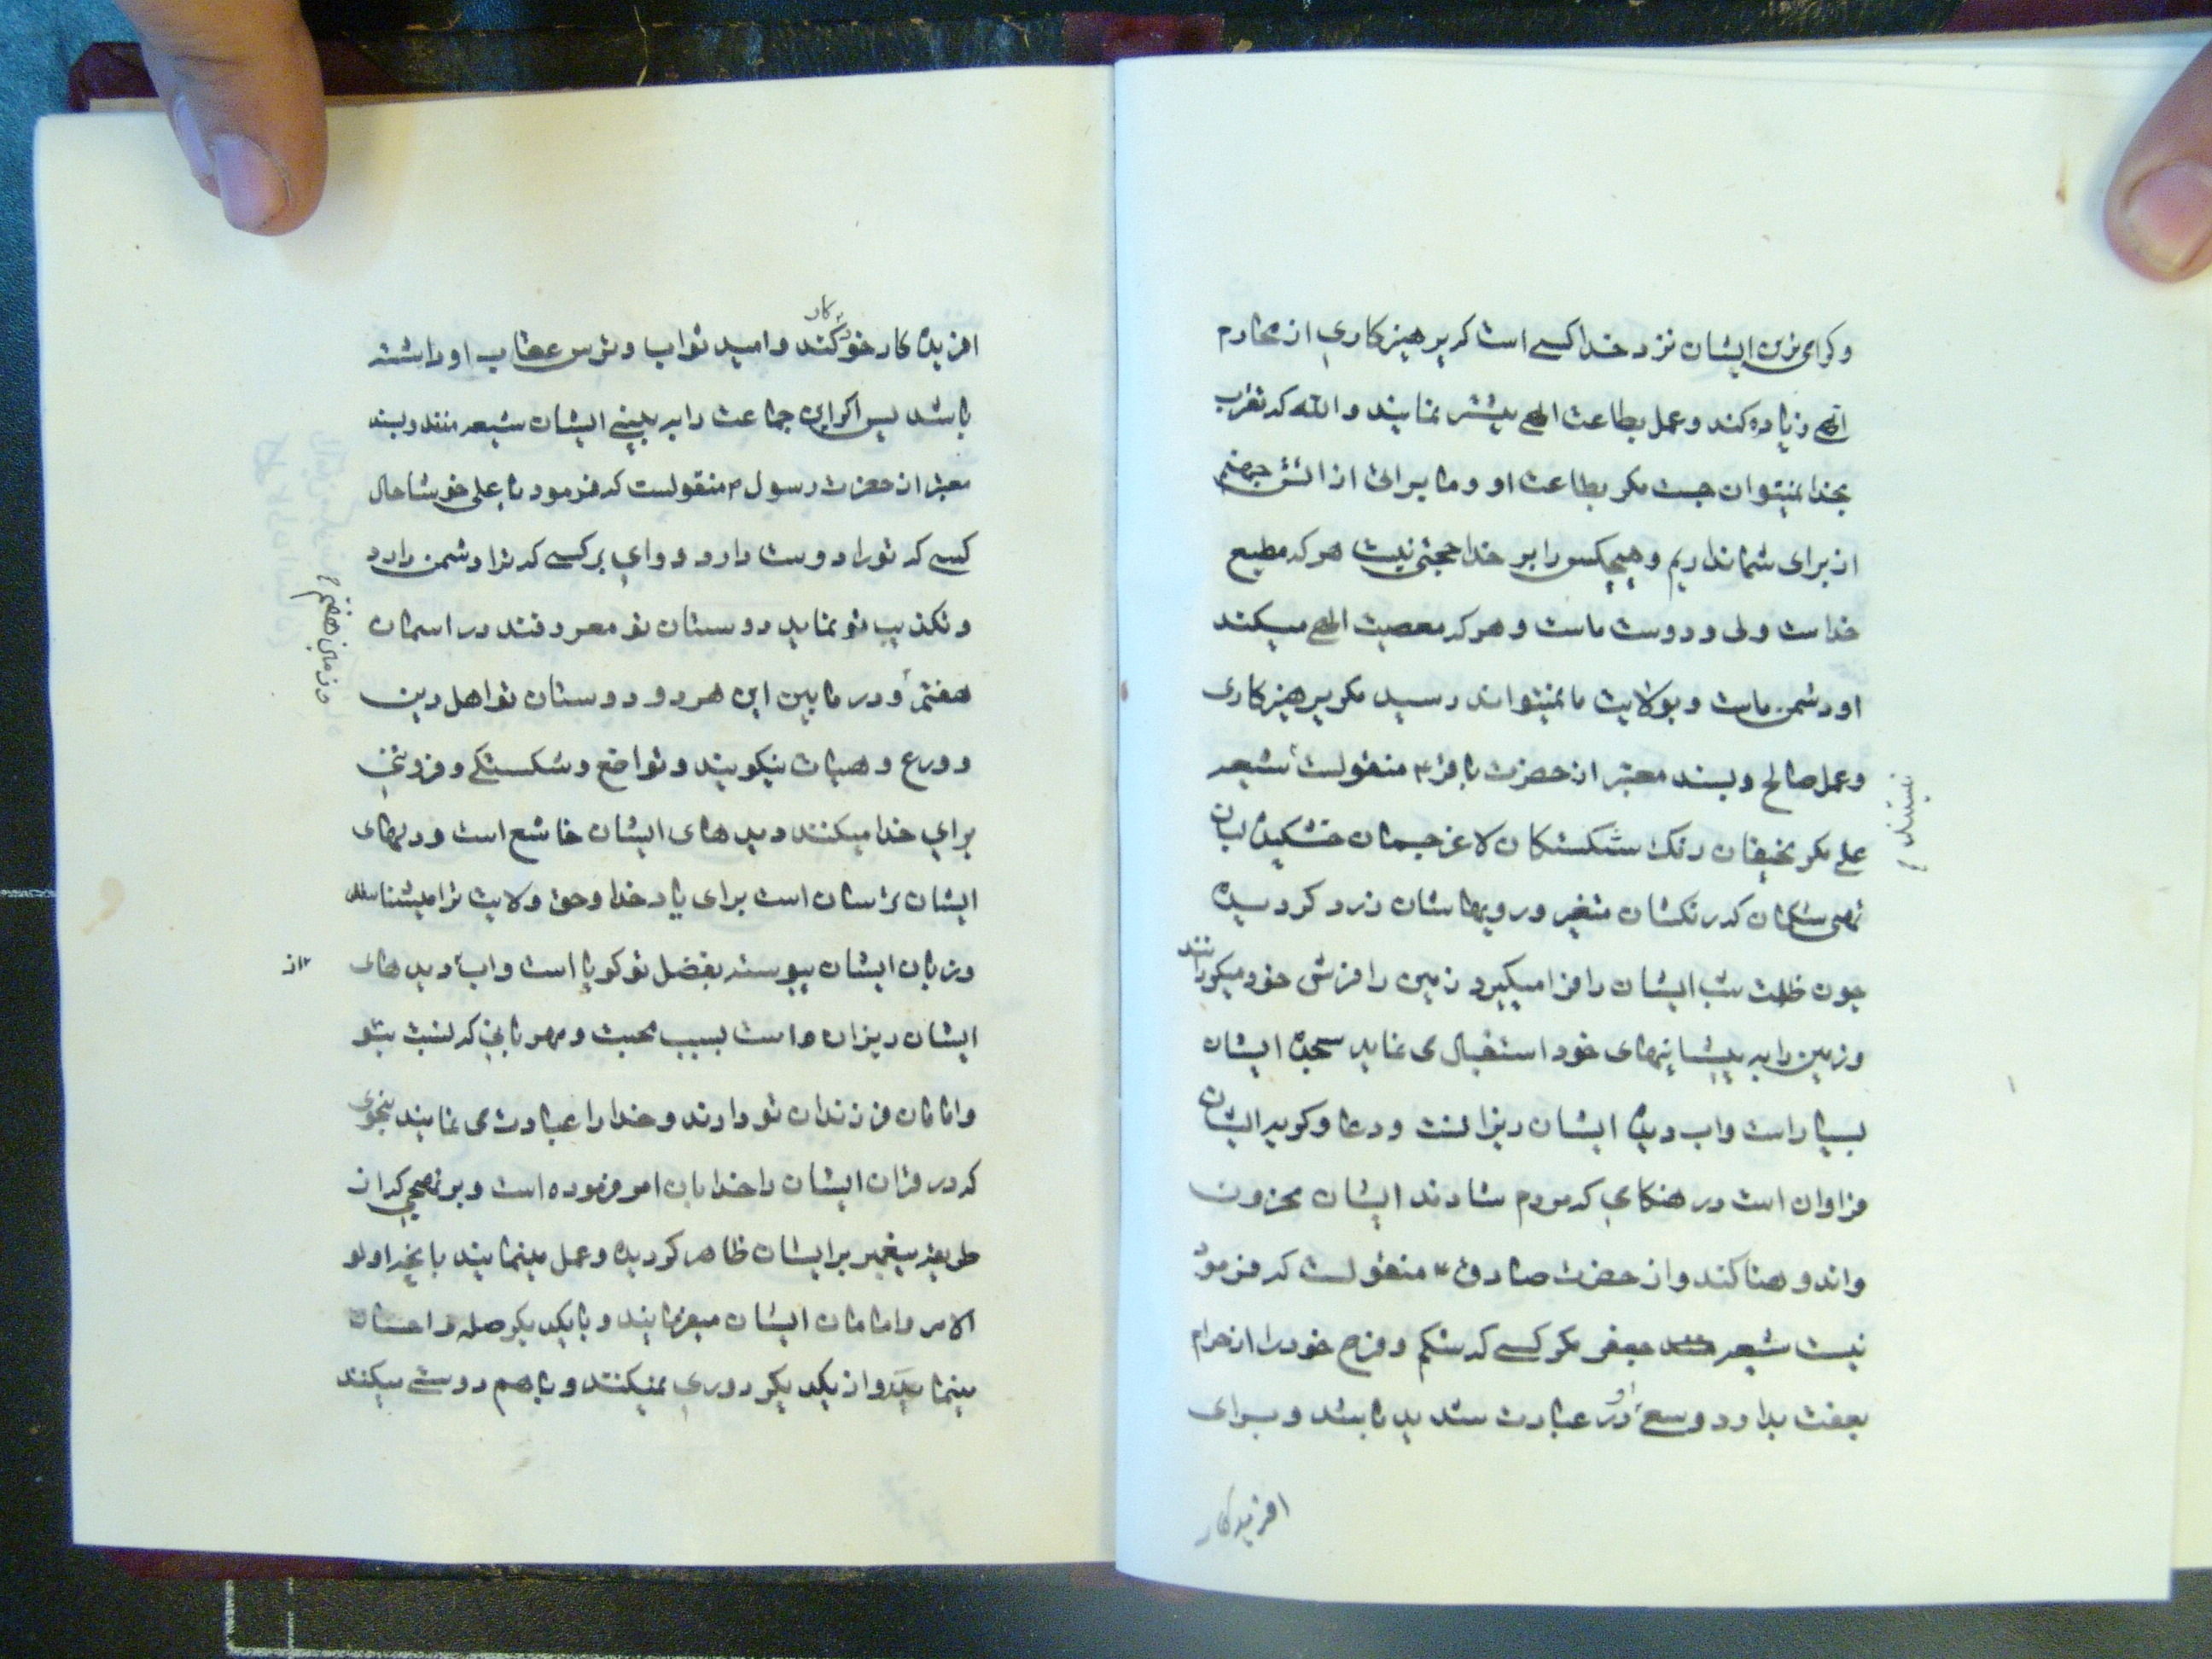 وکرامی‌ترین ایشان نزد خدا کسے است که پرهیزکاری از محارم
الهے زیاده کند و عمل بطاعت الهے بیشتر نمایند و الله که تقرب
بخدا نمیتوان جست مکر بطاعت او و ما براتی از آتش جهنم
از برای شما نداریم و هیچکس را بر خدا حجتی نیست هر که مطیع
خداست ولی و دوست ماست و هر که معصیت الهے میکند
او دشمن ماست و بولایت ما نمیتواند رسید مکر پرهیزکاری
و عمل صالح و بسند معتبر از حضرت باقر ع منقولست شیعه
نیستند
علی مکر نحیفان رنک شکستکان لاغر جسمان خشکیده لبان
تهی شکمان که رنکشان متغیر و رویهاشان زرد کردیده
چون ظلمت شب ایشان را فرا میکیرد زمین را فرش خود میکردانند
و زمین را به پیشانیهای خود استقبال می نماید سجده ایشان
بسیار است و اب دیده ایشان ریزانست و دعا و کریه ایشان
فراوان است در هنکامی که مردم شادند ایشان محزون
و اندوهناکند و از حضرت صادق ع منقولست که فرمود
نیست شیعه جعفر مکر کسے که شکم و فرج خود را از حرام
بعفت بدارد و سعے او در عبادت شدید باشد و برای
افریدکار
افریده کار خود کار کند و امید ثواب و ترس عقاب او داشته
باشد پس اکر این جماعت را به بینی ایشان شیعه منند و بسند
معتبر از حضرت رسول ص منقولست که فرمود یا علی خوشا حال
کسے که تو را دوست دارد و وای بر کسے که ترا دشمن دارد
و تکذیب تو نماید دوستان تو معروفند در اسمان
هفتم و در مابین این هر دو دوستان تو اهل دین
و زمین هفتم
و ورع و هیات نیکویند و تواضع و شکستکے و فروتنی
برای خدا میکنند دیده های ایشان خاشع است و دلهای
ایشان ترسان است برای یاد خدا و حق ولایت ترا میشناسند
و زبان ایشان پیوسته بفضل تو کویا است و اب دیده های
از
ایشان ریزان است بسبب محبت و مهربانی که نسبت بتو
و امامان فرزندان تو دارند و خدا را عبادت می نمایند بنحوی
که در قران ایشان را خدا بان امر فرموده است و بر نهجی که از
طریقه پیغمبر بر ایشان ظاهر کردیده و عمل مینمایند بانچه اولو
الامر و امامان ایشان میفرمایند و با یکدیکر صله و احسان
مینمایند و از یکدیکر دوری نمیکنند و با هم دوستے میکنند